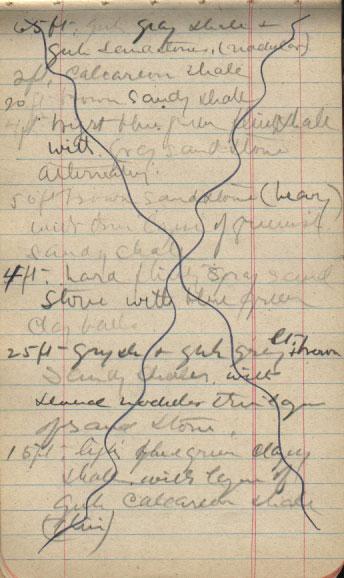 65 ft. gray shale +
sandstone, (nodular)
2 ft. Calcareous shale
20 ft brown sandy shale
4 ft. blue green shale
with Gray sandstone
alternating.
50 ft brown sandstone (heavy)
with thin of
sandy shale
4 ft. hard gray sand
stone with blue green
clay balls.
25 ft- + gray + brown
sandy shales, with
nodular thin layers
of sand stone,
15 ft- blue green clay
shale with layers of
Calcareous shale
(thin)